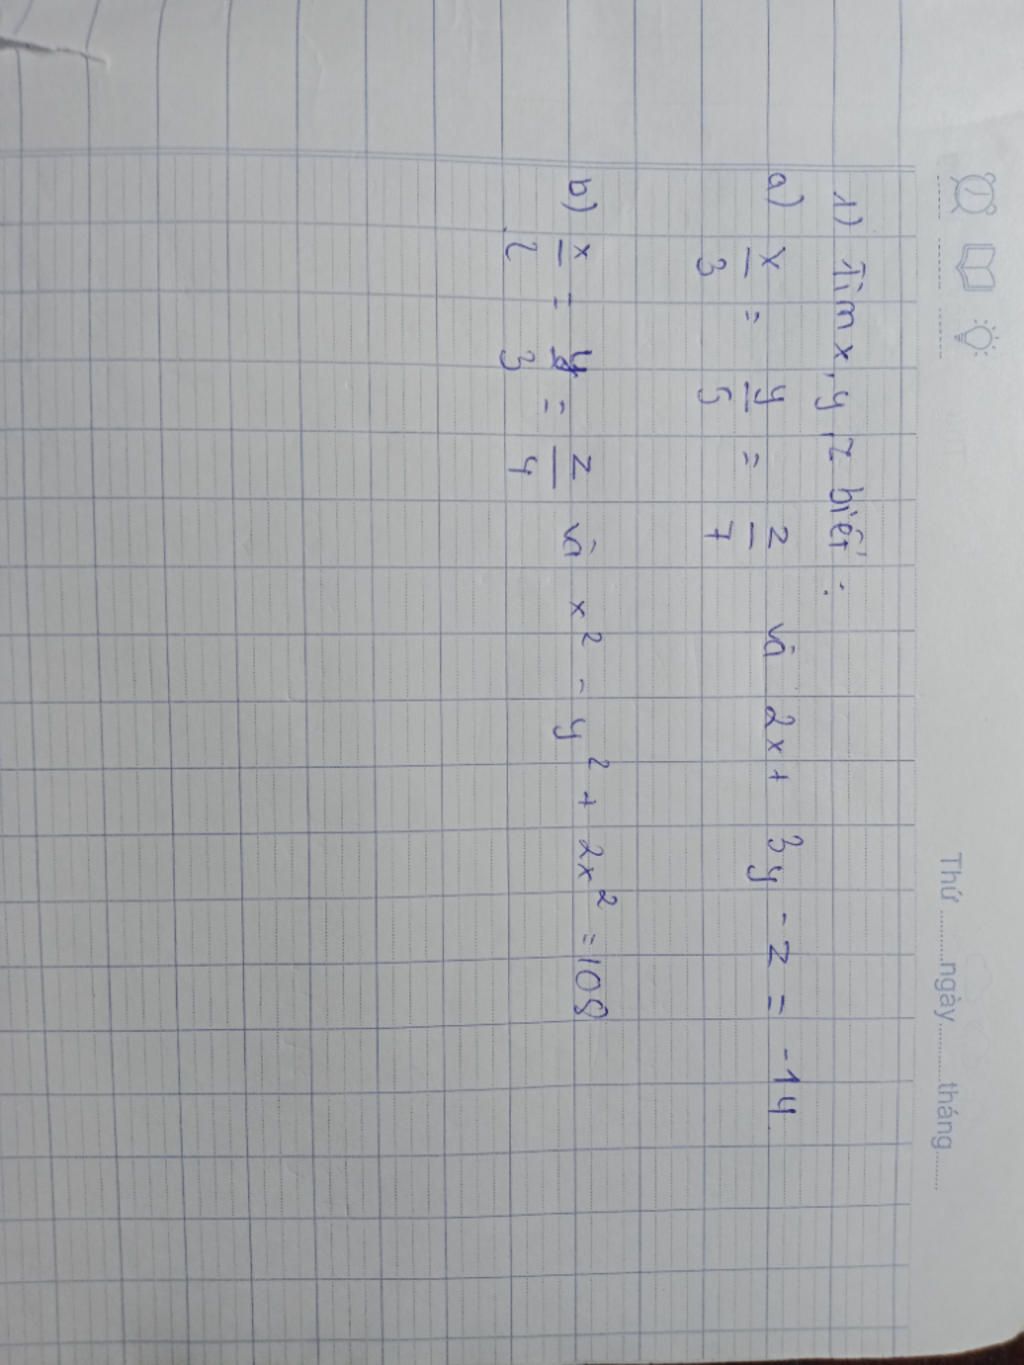 Thứ..........ngày..........tháng..........
1) Tìm x, y, z biết :
a) x/3 = y/5 = z/7 và 2x + 3y - z = -14
b) x/2 = y/3 = z/4 và x² - y² + 2x² = 108